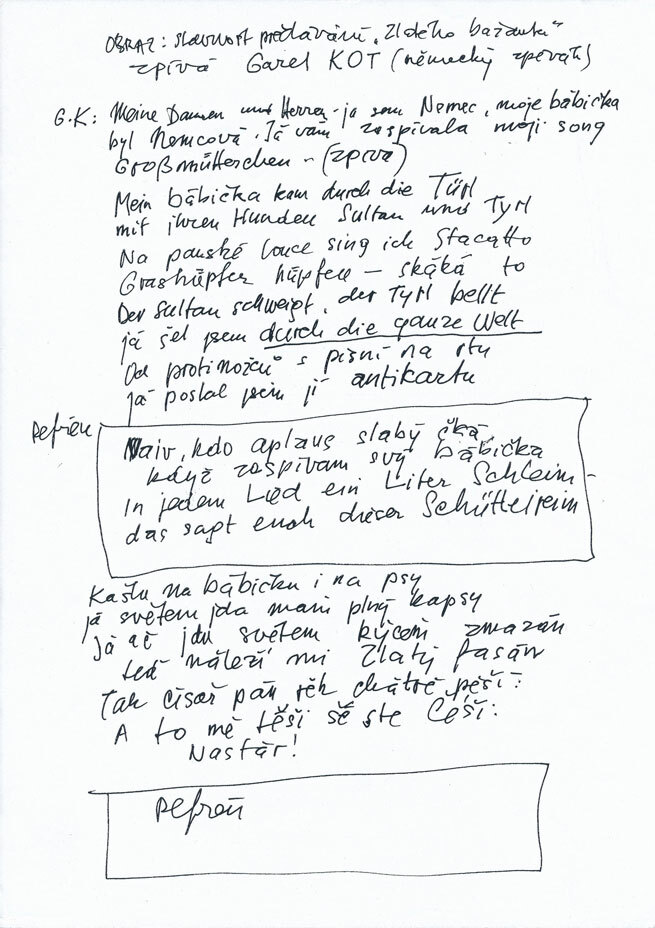 OBRAZ: slavnost předávání "Zlatého bažanta"
zpívá Garel KOT (německý zpěvák)
G.K: Meine Damen und Herren - ja sem Nemec, moje bábička
byl Nemcová. Já vám zaspívala moji song
Großmütterchen - (zpívá)
Mein bábička kam durch die TÜR
mit ihren Hunden Sultan und Tyrl
Na panské louce sing ich Stacatto
Grashüpfer hüpfen - skáká to
Der Sultan schweigt, der Tyrl bellt
já šel jsem durch die ganze Welt
Od protinožců s písní na rtu
já poslal jsem jí antikartu
Refrén
Naiv, kdo aplaus slabý čká
když zaspívam svý bábička
In jedem Lied ein Liter Schleim -
das sagt euch dieser Schüttelreim
Kašlu na bábičku i na psy
já světem jda mám plný kapsy
Já ač jdu světem kýčem zmazán
teď náleží mi Zlatý fasán
Tak císař pán řek chátře pěší:
A to mě těší še ste Češi:
Nastár!
Refrén